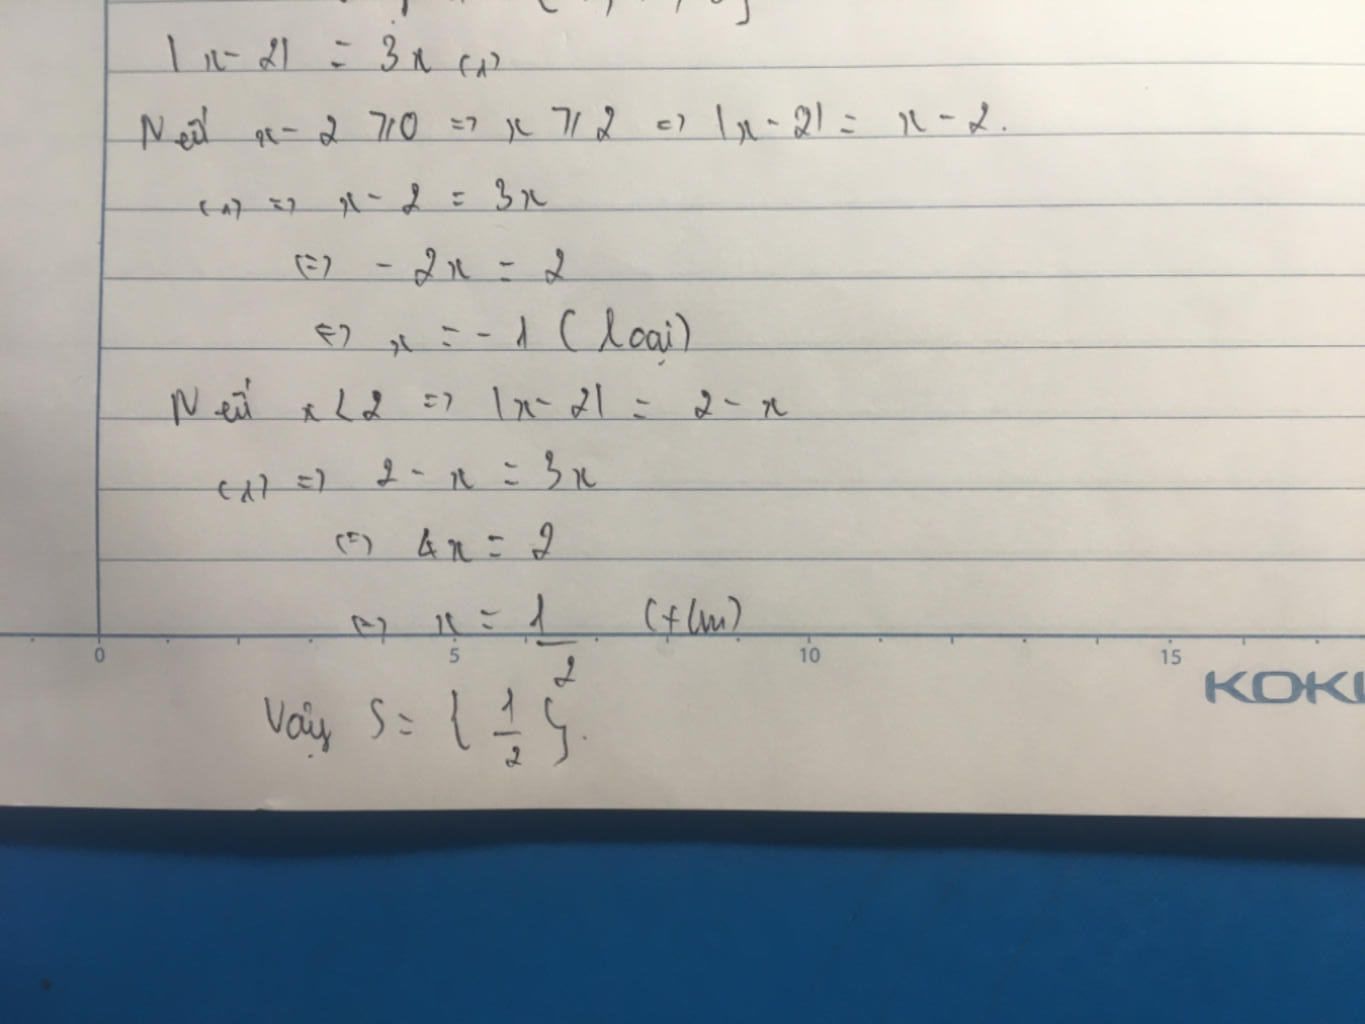 |x-2| = 3x (1)
Nếu x-2 ≥ 0 => x ≥ 2 => |x-2| = x-2.
(1) => x-2 = 3x
<=> -2x = 2
<=> x = -1 (loại)
Nếu x < 2 => |x-2| = 2-x
(1) => 2-x = 3x
<=> 4x = 2
<=> x = 1/2 (t/m)
0 5 10 15
KOKU
Vậy S = { 1/2 }.